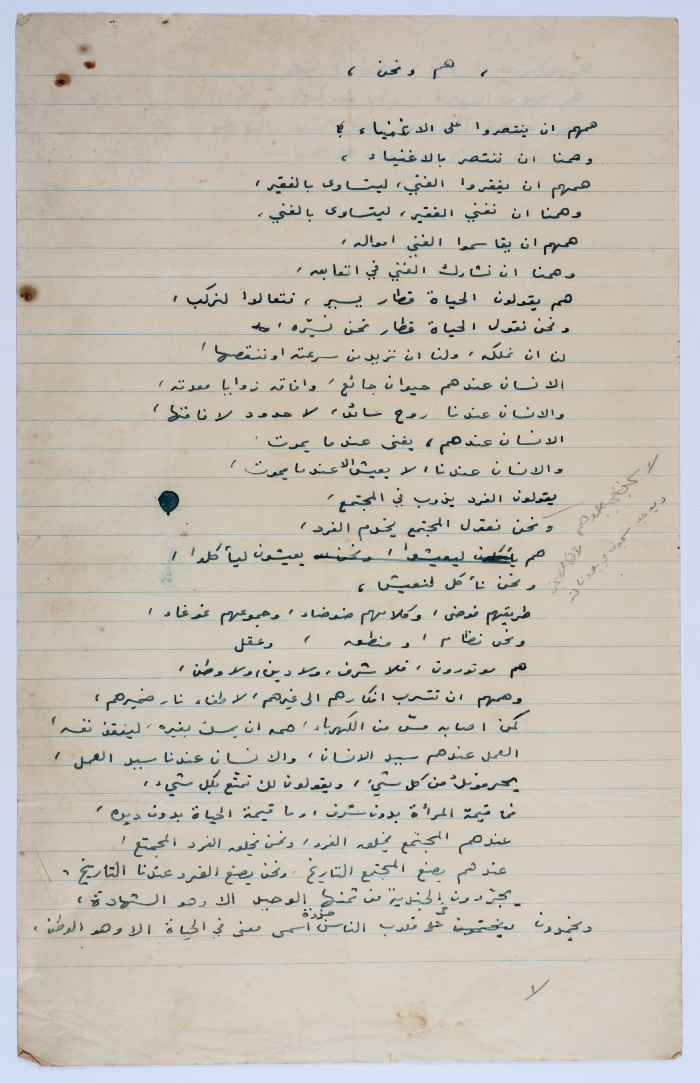 ، هم ونحن ،
همهم ان ينتصروا على الاغنياء ،
وهمنا ان ننتصر بالاغنياء ،
همهم ان يفقروا الغني، ليتساوى بالفقير،
وهمنا ان نغني الفقير، ليتساوى بالغني.
همهم ان يقاسموا الغني امواله،
وهمنا ان نشارك الغني في اتعابه،
هم يقولون الحياة قطار يسير ، فتعالوا لنركب ،
ونحن نقول الحياة قطار نحن نسيّره ،
لنا ان نملكه ، ولنا ان نزيد من سرعته او ننقصها ،
الانسان عندهم حيوان جائع ، وافاقه زوايا معدته ،
والانسان عندنا روح سائل، لا حدود لافاقها ،
الانسان عندهم ، يفنى عندما يموت ،
والانسان عندنا، لا يعيش الا عندما يموت ،
يقولون الفرد يذوب في المجتمع ،
ونحن نقول المجتمع يخدم الفرد ،
هم يعيشون ليأكلوا ،
ونحن نأكل لنعيش ،
طريقهم فوضى ، وكلامهم ضوضاء ، وجموعهم غوغاء ،
ونحن نظام ، ومنطق ، وعقل
هم موتورون ، فلا شرف ، ولا دين ، ولا وطن ،
وهمهم ان تتسرب افكارهم الى غيرهم ، لاطفاء نار ضميرهم ،
كمن اصابه مسّ من الكهرباء ، همه ان يمسك بغيره ، لينقذ نفسه ،
العمل عندهم سيد الانسان ، والانسان عندنا سيد العمل ،
يحرمونك من كل شيء ، ويقولون لك تمتع بكل شيء ،
فما قيمة المرأة بدون شرف ، وما قيمة الحياة بدون دين ،
عندهم المجتمع يخلق الفرد ، ونحن يخلق الفرد المجتمع ،
عندهم يصنع المجتمع التاريخ ، ونحن يصنع الفرد عندنا التاريخ ،
يجردون الجندية من ثمنها الوحيد الا وهو الشهادة ،
ويخمدون في قلوب الناس جذوة اسمى معنى في الحياة الا وهو الوطن ،
لا